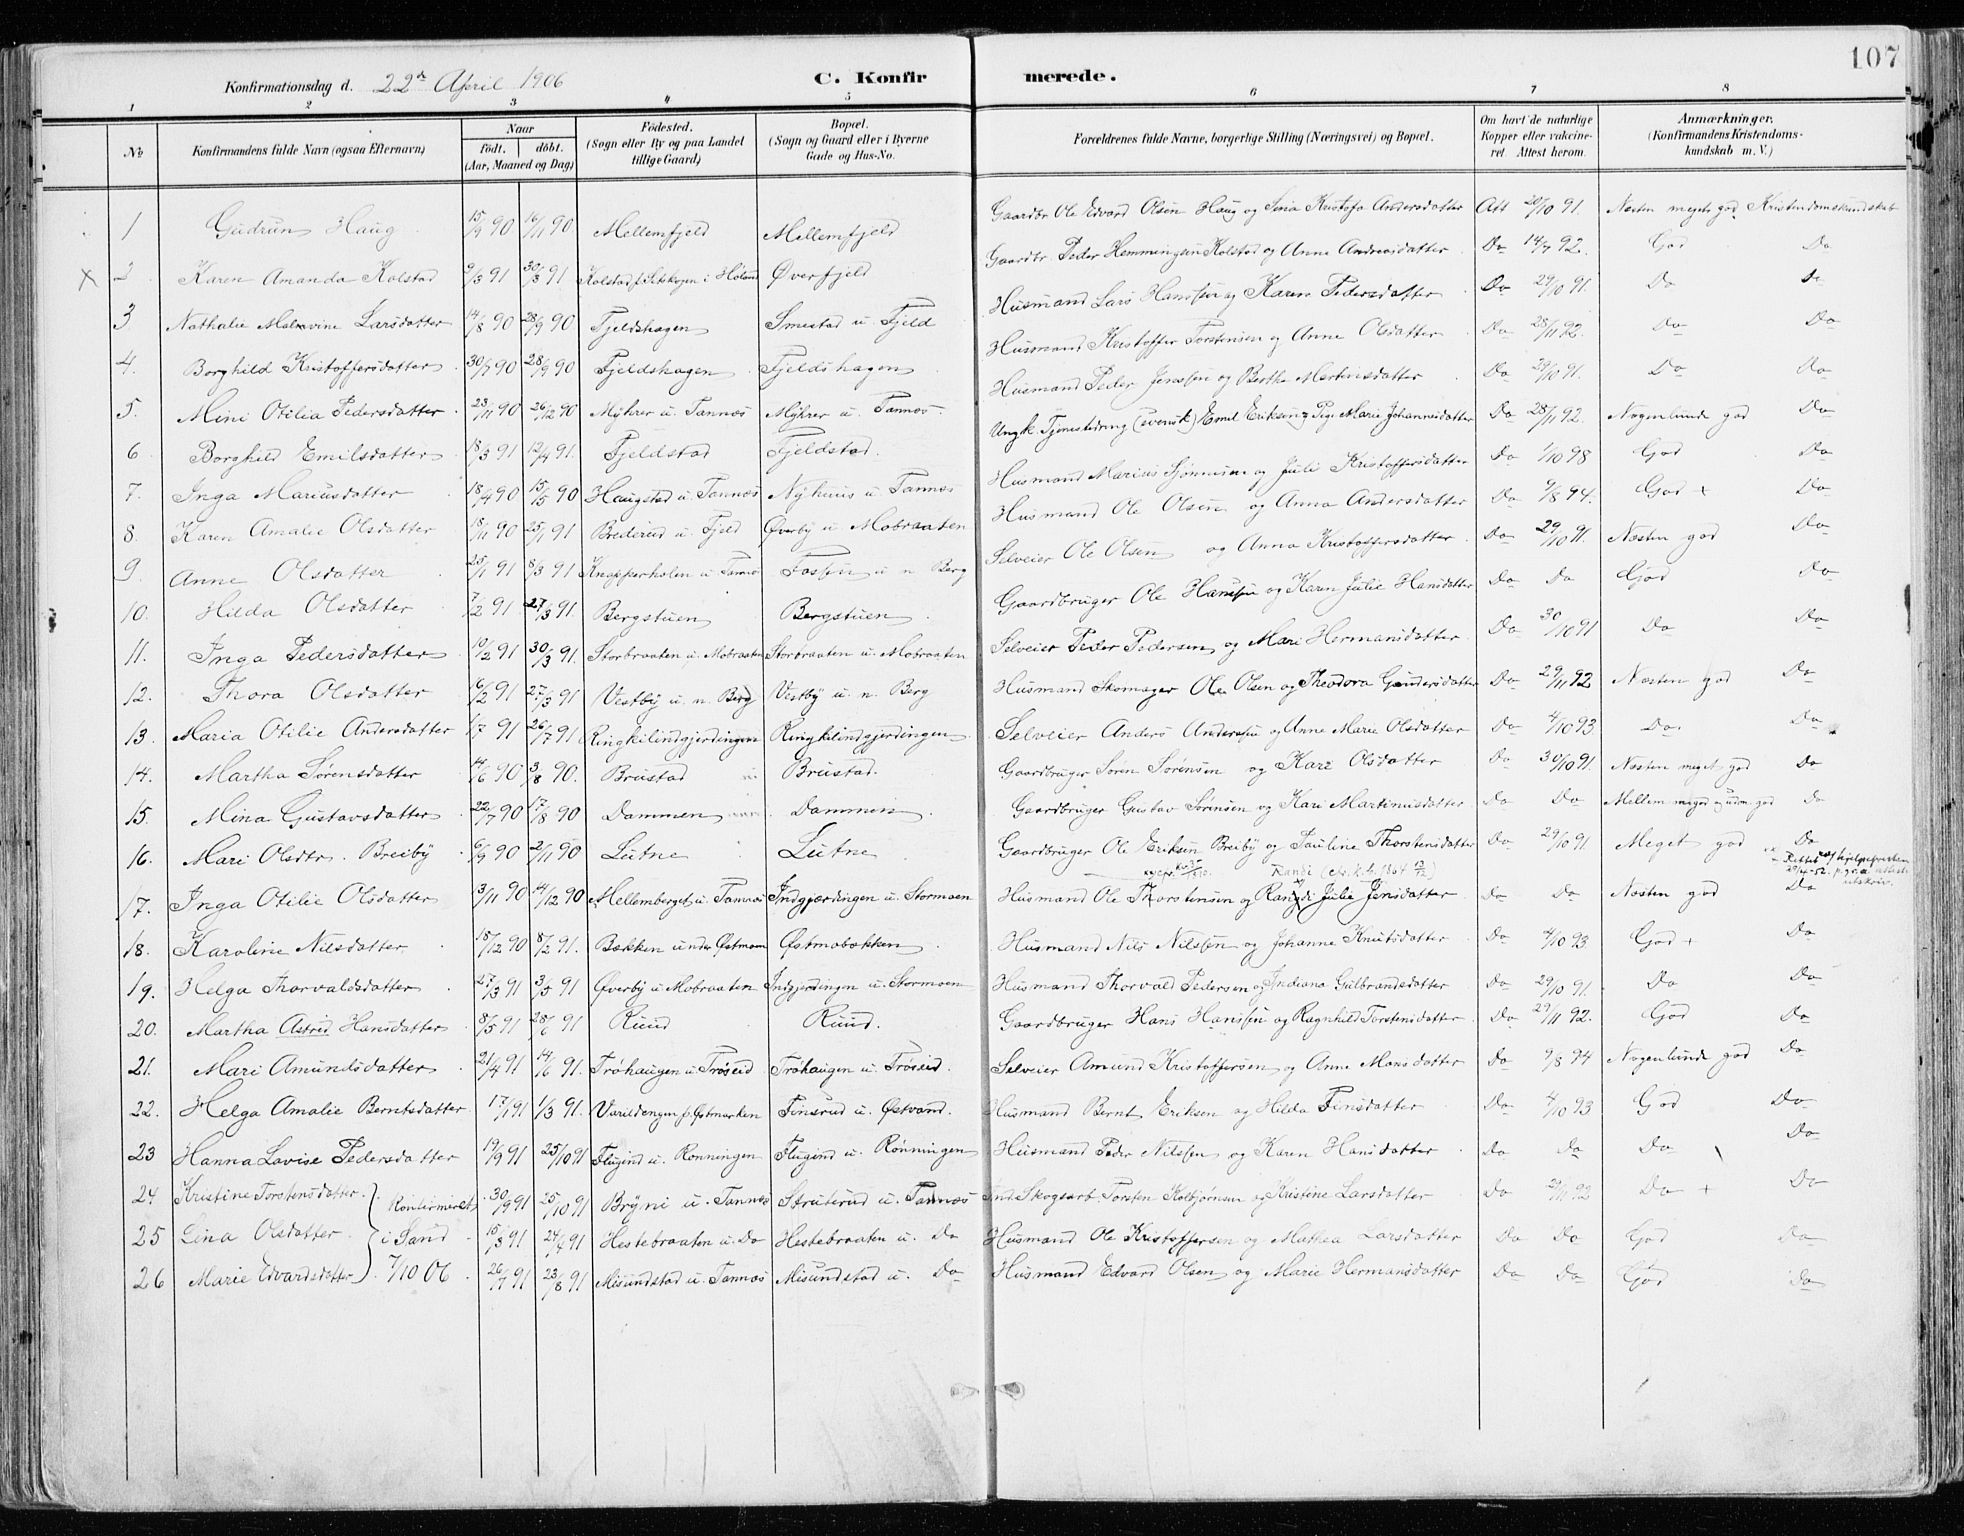 107
Konfirmationsdag d. 22de April 1906 C. Konfirmerede.
1 2 3 4 5 6 7 8
No Konfirmandens fulde Navn (ogsaa Efternavn) Naar födt. döbt. (Aar, Maaned og Dag) Födested. (Sogn eller By og paa Landet tillige Gaard) Bopæl. (Sogn og Gaard eller i Byerne Gade og Hus-No. Forældrenes fulde Navne, borgerlige Stilling (Næringsvei) og Bopæl. Om havt de naturlige Kopper eller vakcineret. Attest herom. Anmærkninger. (Konfirmandens Kristendomskundskab m. V.)
1 Gudrun Haug 15/9 90 16/11 90 Mellemfjeld Mellemfjeld Gaardbr Ole Edvard Olsen Haug og Andersdatter Att 20/10 91. Næsten meget god Kristendomskundskab
X 2 Karen Amanda Kolstad 9/3 91 30/3 91 Kolstad i Høland Øverfjeld Gaardbr. Peder Hemmingsen Kolstad og Anne Andreasdatter Do 14/7 92. God Do
3 Nathalie Malavine Larsdatter 14/8 90 28/9 90 Fjeldshagen Smestad u. Fjeld Husmand Lars Hanssen og Karen Pedersdatter Do 29/10 91. Do Do
4. Borghild Kristoffersdatter 30/7 90 28/9 90 Fjeldshagen Fjeldshagen Husmand Kristoffer Torstensen og Anne Olsdatter Do 28/11 92. Do Do
5. Mini Otilia Pedersdatter 23/11 90 26/12 90 Myhrer u. Tannæs Myhrer u. Tannæs Husmand Peder Jenssen og Berthe Martinsdatter Do 29/10 91. Do Do
6 Borghild Emilsdatter 18/3 91 12/4 91. Fjeldstad Fjeldstad Ungk. (svensk) Emil Eriksen Pige Marie Johannesdatter Do 28/11 92. Nogenlunde god Do
7. Inga Mariusdatter 18/4 90 15/5 90 Haugstad u. Tannæs Nyhuus u. Tannæs Husmand Marius og Juli Kristoffersdatter Do 1/10 98 God Do
8. Karen Amalie Olsdatter 18/11 90 25/1 91 Brederud u. Fjeld Øverby u. Mobraaten Husmand Ole Olsen og Anna Andersdatter Do 9/8 94. God + Do
9. Anne Olsdatter 25/1 91 8/3 91 Knapperholen u Tannæs Fossen u n Berg Selveier Ole Olsen og Anna Kristoffersdatter Do 29/10 91. Næsten god Do
10. Hilda Olsdatter 7/2 91 27/3 91. Bergstuen Bergstuen Gaardbruger Ole Hanssen og Karen Julie Hansdatter Do Do God Do
11. Inga Pedersdatter 10/2 91 30/3 91. Storbraaten u. Mobraaten Storbraaten u. Mobraaten Selveier Peder Pedersen og Mari Hermansdatter Do 30/10 91 Do Do
12. Thora Olsdatter 16/2 91 27/3 91 Vestby u. n. Berg Vestby u. n. Berg Husmand Skomager Ole Olsen og Theodora Gundersdatter Do 29/11 92 Næsten god Do
13. Maria Otilie Andersdatter 1/7 91 26/7 91 Ringkilindgjerdingen Ringkilindgjerdingen Selveier Anders Anderssen og Anne Marie Olsdatter Do 4/10 93. Do. Do
14. Martha Sørensdatter 14/6 90 3/8 90. Brustad Brustad. Gaardbruger Sören Sörensen og Kari Olsdatter Do 30/10 91. Næsten meget god Do
15. Mina Gustavsdatter 22/7 90 17/8 90 Dammen Dammen Gaardbruger Gustav Sørensen og Kari Martinusdatter Do Do Mellem meget og udm. god Do
16. Mari Olsdtr. Breiby 6/9 90 2/11 90 Lutne Lutne Gaardbruger Ole Eriksen Breiby og Pauline Thorstensdatter Do 29/10 91 Meget god Do
Randi
17. Inga Otilie Olsdatter 3/11 90 14/12 90 Mellemberget u. Tannæs Indgjærdingen u. Stormoen Husmand Ole Thorstensen og Randi Julie Jensdatter Do Do Næsten god Do
18. Karoline Nilsdatter 18/12 90 8/2 91. Bækken under Østmoen Østmobækken Husmand Nils Nilssen og Johanne Knutsdatter Do 4/10 93 God + Do
19. Helga Thorvaldsdatter 27/3 91 3/5 91 Øverby u. Mobraaten Indgjerdingen u. Stormoen Husmand Thorvald Pedersen og Indiana Gulbrandsdatter Do 29/10 91. Do Do
20. Martha Astrid Hansdatter 8/5 91 28/6 91 Ruud Ruud. Gaardbruger Hans Hanssen og Ragnhild Torstensdatter Do 29/11 92. God Do
21. Mari Amundsdatter 21/4 91 14/6 91. Trøhaugen u. Trøseid Trøhaugen u. Trøseid. Selveier Amund Kristoffersen og Anne Mansdatter Do 9/8 94 Nogenlunde god Do
22. Helga Amalie Berntsdatter 17/1 91 1/3 91. Varildengen p. Østmarken Finsrud u. Østvand. Husmand Bernt Eriksen og Hilda Finsdatter Do 4/10 93 God Do
23 Hanna Lovise Pedersdatter 19/9 91 25/10 91 Flugind u. Rønningen Flugind u. Rønningen Husmand Peder Nilssen og Karen Hansdatter Do Do Do Do
24 Kristine Torstensdatter. Konfirmeret 30/9 91 25/10 91 Bryni u. Tannæs Struterud u. Tannæs Ind. Skogsarb Torsten Kolbjørnsen og Kristine Larsdatter Do 29/11 92 Do + Do
25 Lina Olsdatter i Sand 15/3 91 24/4 91 Hestebraaten u. Do Hestebraaten u. Do Husmand Ole Kristoffersen og Mathea Larsdatter Do Do God Do
26 Marie Edvardsdatter 7/10 06 26/7 91 23/8 91 Misundstad u. Tannæs Misundstad u. Do Husmand Edvard Olsen og Marie Hermansdatter Do Do God Do